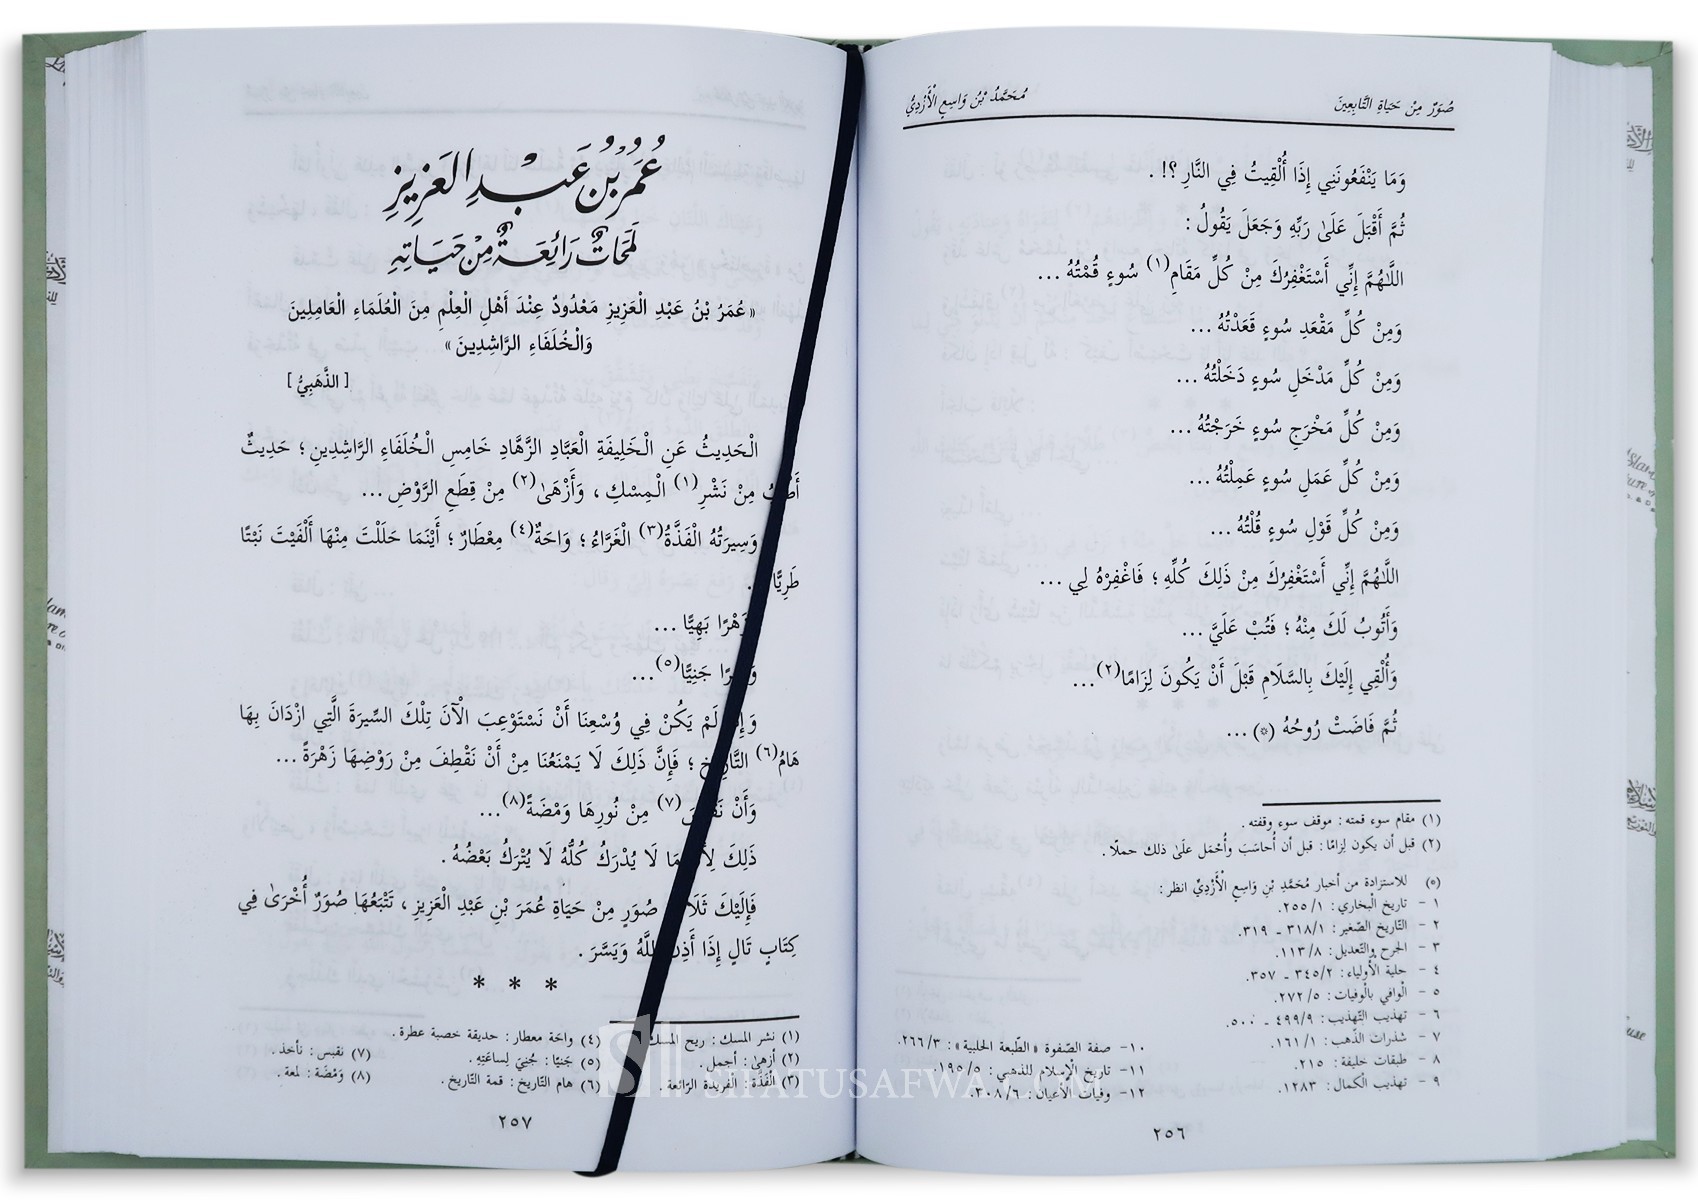 صُوَرٌ مِنْ حَيَاةِ التَّابِعِينَ
مُحَمَّدُ بْنُ وَاسِعِ الْأَزْدِيُّ
وَمَا يَنْفَعُونَنِي إِذَا أُلْقِيتُ فِي النَّارِ ؟! .
ثُمَّ أَقْبَلَ عَلَىٰ رَبِّهِ وَجَعَلَ يَقُولُ :
اللَّاهُمَّ إِنِّي أَسْتَغْفِرُكَ مِنْ كُلِّ مَقَامِ(١) سُوءٍ قُمْتُهُ ...
وَمِنْ كُلِّ مَقْعَدِ سُوءٍ قَعَدْتُهُ ...
وَمِنْ كُلِّ مَدْخَلِ سُوءٍ دَخَلْتُهُ ...
وَمِنْ كُلِّ مَخْرَجِ سُوءٍ خَرَجْتُهُ ...
وَمِنْ كُلِّ عَمَلِ سُوءٍ عَمِلْتُهُ ...
وَمِنْ كُلِّ قَوْلِ سُوءٍ قُلْتُهُ ...
اللَّاهُمَّ إِنِّي أَسْتَغْفِرُكَ مِنْ ذَلِكَ كُلِّهِ ؛ فَاغْفِرْهُ لِي ...
وَأَتُوبُ لَكَ مِنْهُ ؛ فَتُبْ عَلَيَّ ...
وَأُلْقِي إِلَيْكَ بِالسَّلَامِ قَبْلَ أَنْ يَكُونَ لِزَامًا(٢) ...
ثُمَّ فَاضَتْ رُوحُهُ (*) ...
(١) مقام سوء قمته : موقف سوء وقفته .
(٢) قبل أن يكون لِزامًا : قبل أن أُحاسَبَ وأُحْمَل علىٰ ذلك حملًا .
(*) للاستزادة من أخبار مُحَمَّدِ بْنِ وَاسِعِ الْأَزْدِيِّ انظر :
١ - تاريخ البخاري : ٢٥٥/١.
٢ - التّاريخ الصّغير : ٣١٨/١ - ٣١٩.
٣ - الجرح والتّعديل : ١١٣/٨.
٤ - حلية الأولياء : ٣٤٥/٢ - ٣٥٧.
٥ - الوافي بالوفيات : ٢٧٢/٥.
٦ - تهذيب التّهذيب : ٤٩٩/٩ - ٥٠٠.
٧ - شذرات الذّهب : ١٦١/١.
٨ - طبقات خليفة : ٢١٥.
٩ - تهذيب الكمال : ١٢٨٣.
١٠- صفة الصّفوة «الطّبعة الحلبية» : ٢٦٦/٣.
١١- تاريخ الإسلام للذّهبي : ١٩٥/٥.
١٢- وفيات الأعيان : ٣٠٨/٦.
٢٥٦
عُمَرُ بْنُ عَبْدِ العَزِيزِ
لَمَحَاتٌ رَائِعَةٌ مِنْ حَيَاتِهِ
« عُمَرُ بْنُ عَبْدِ الْعَزِيزِ مَعْدُودٌ عِنْدَ أَهْلِ الْعِلْمِ مِنَ الْعُلَمَاءِ الْعَامِلِينَ
وَالْخُلَفَاءِ الرَّاشِدِينَ »
[ الذَّهَبِيُّ ]
الْحَدِيثُ عَنِ الْخَلِيفَةِ الْعَبَّادِ الزَّهَّادِ خَامِسِ الْخُلَفَاءِ الرَّاشِدِينِ ؛ حَدِيثٌ
مِنْ نَشْرِ(١) الْمِسْكِ ، وَأَزْهَىٰ(٢) مِنْ قِطَعِ الرَّوْضِ ...
وَسِيرَتُهُ الْفَذَّةُ(٣) الْغَرَّاءُ ؛ وَاحَةٌ(٤) مِعْطَارٌ ؛ أَيْنَمَا حَلَلْتَ مِنْهَا أَلْفَيْتَ نَبْتًا
طَرِيًّا
زَهْرًا بَهِيًّا ...
جَنِيًّا(٥) ...
وَإِنْ لَمْ يَكُنْ فِي وُسْعِنَا أَنْ نَسْتَوْعِبَ الْآنَ تِلْكَ السِّيرَةَ الَّتِي ازْدَانَ بِهَا
هَامُ(٦) التَّارِيخِ ؛ فَإِنَّ ذَلِكَ لَا يَمْنَعُنَا مِنْ أَنْ نَقْطِفَ مِنْ رَوْضِهَا زَهْرَةً ...
وَأَنْ نَقْبِسَ(٧) مِنْ نُورِهَا وَمْضَةً(٨) ...
ذَلِكَ لِأَنَّ مَا لَا يُدْرَكُ كُلُّهُ لَا يُتْرَكُ بَعْضُهُ .
فَإِلَيْكَ ثَلَاثَ صُوَرٍ مِنْ حَيَاةِ عُمَرَ بْنِ عَبْدِ الْعَزِيزِ ، تَتْبَعُهَا صُوَرٌ أُخْرَىٰ فِي
كِتَابٍ تَالٍ إِذَا أَذِنَ اللَّهُ وَيَسَّرَ .
* * *
(١) نشر المسك : ريح المسك
(٢) أزهىٰ : أجمل .
(٣) الْفَذَّة : الفريدة الرّائعة .
(٤) واحَة معطار : حديقة خصبة عطرة .
(٥) جَنيًّا : جُنِيَ لِساعَتِهِ .
(٦) هام التّاريخ : قمة التّاريخ .
(٧) نقبس : نأخذ .
(٨) وَمْضَة : لمعة .
٢٥٧
SIFATUSAFWA.COM